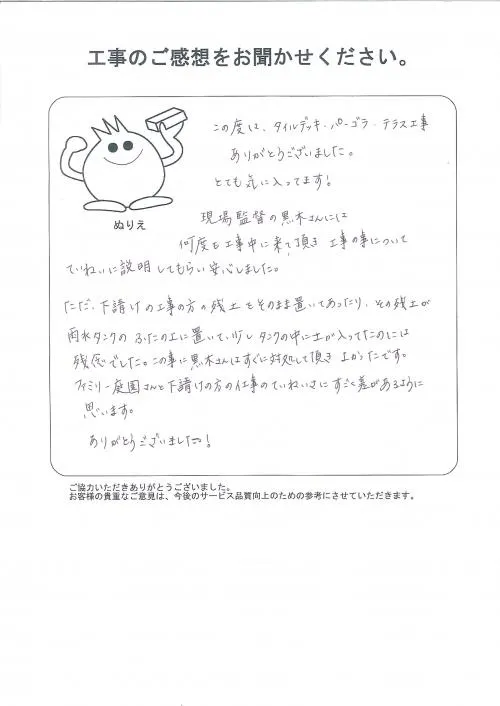 工事のご感想をお聞かせください。
この度は、タイルデッキ・パーゴラ・テラス工事
ありがとうございました。
とても気に入ってます!
ぬりえ
現場監督の黒木さんには
何度も工事中に来て頂き 工事の事について
ていねいに説明してもらい安心しました。
ただ、下請けの工事の方の残土をそのまま置いてあったり、その残土が
雨水タンクの ふたの上に置いて、少しタンクの中に土が入ってたのには
残念でした。この事に黒木さんはすぐに対処して頂き よかったです。
ファミリー庭園さんと下請けの方の仕事のていねいさに すごく差があるように
思います。
ありがとうございました!
ご協力いただきありがとうございました。
お客様の貴重なご意見は、今後のサービス品質向上のための参考にさせていただきます。